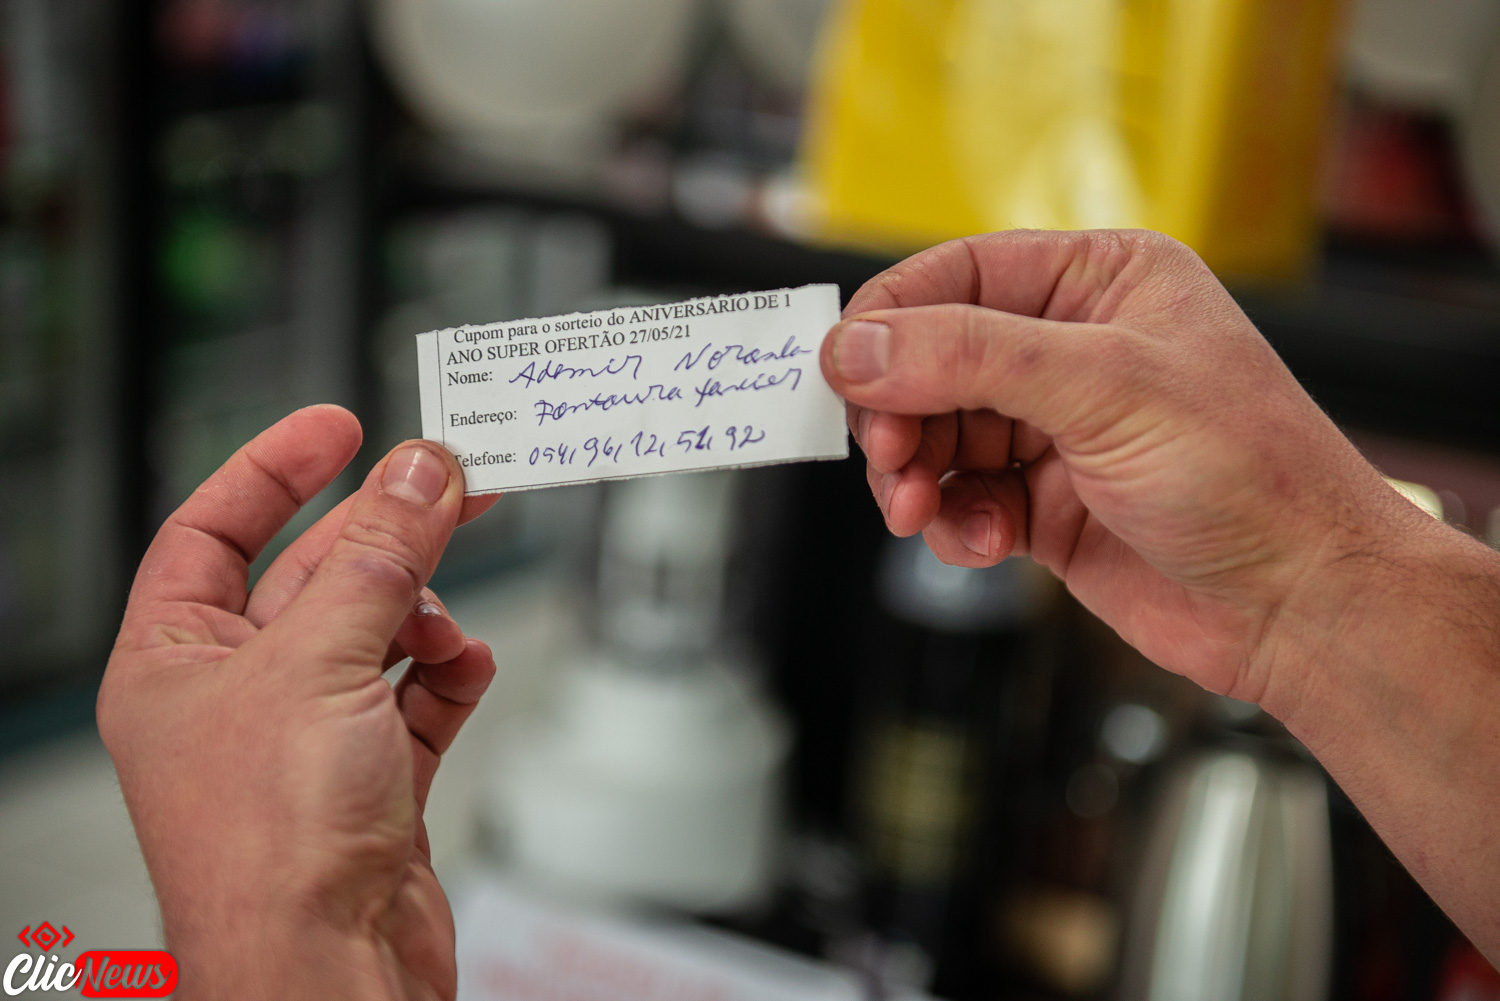 Cupom para o sorteio do ANIVERSÁRIO DE 1
ANO SUPER OFERTÃO 27/05/21
Nome: Ademir
Endereço: Fontoura Xavier
Telefone: 054, 96, 12, 51, 92
ClicNews